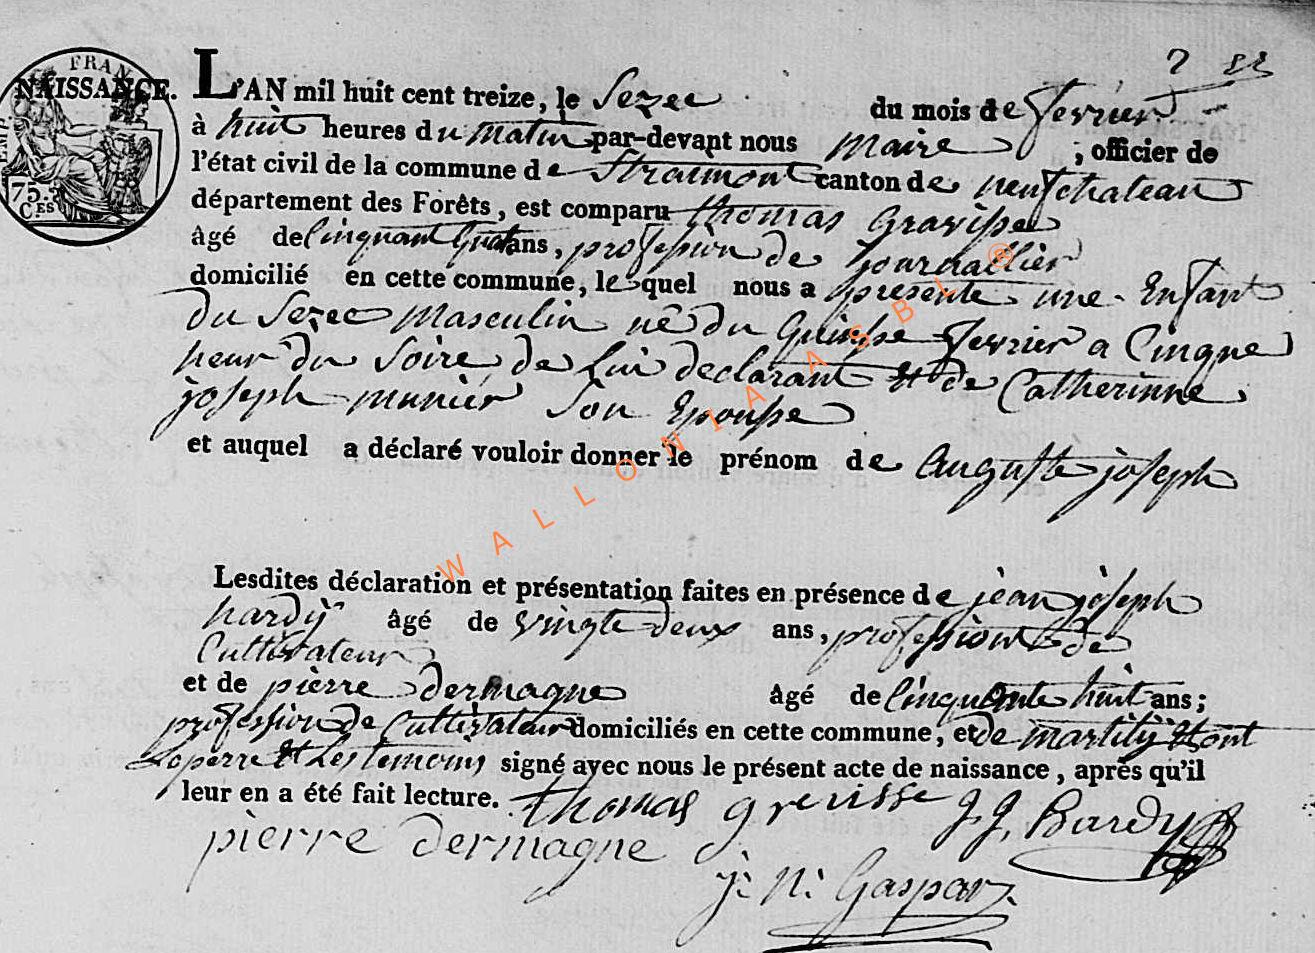 7 82
FRAN
NAISSANCE. L'AN mil huit cent treize, le Sezee du mois de fevrier
à huit heures du matin par-devant nous maire ; officier de
l'état civil de la commune de Straimont canton de neufchateau
EMP.
75.
CES
département des Forêts, est comparu thomas Gravisse
âgé de Cinquant ans, profession de journallier
domicilié en cette commune, le quel nous a presente une Enfant
Du Sezee Masculin nê du Quinse fevrier a Cinque
heur du Soire de Lui declarant et de Catherinne
joseph munier Son Epousse
et auquel a déclaré vouloir donner le prénom de auguste joseph
WALLONIA ASBL ®
Lesdites déclaration et présentation faites en présence de jean joseph
hardÿ âgé de vingte deux ans, profession de
Cultivateur
et de pierre dermagne âgé de Cinquante huit ans ;
profession de Cultivateur domiciliés en cette commune, et de martilÿ et ont
Le perre et Les temoins signé avec nous le présent acte de naissance, après qu'il
leur en a été fait lecture. thomas grevisse J. J. hardy
pierre dermagne
j: N: Gaspar